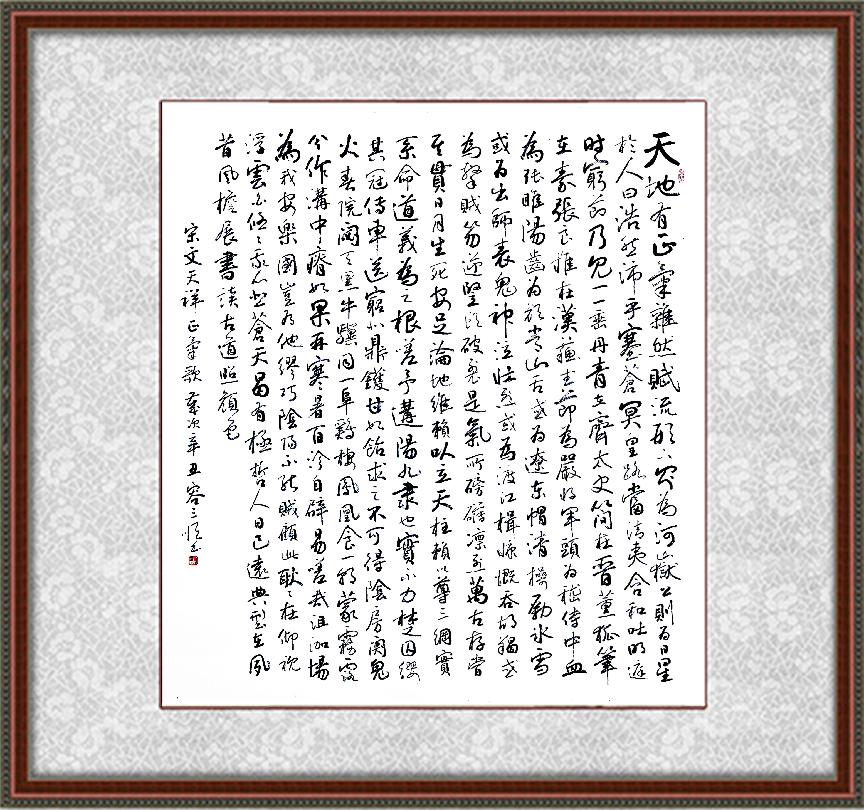 天地有正氣雜然賦流形下則為河嶽上則為日星
於人曰浩然沛乎塞蒼冥皇路當清夷含和吐明庭
時窮節乃見一一垂丹青在齊太史簡在晉董狐筆
在秦張良椎在漢蘇武節為嚴將軍頭為嵇侍中血
為張睢陽齒為顏常山舌或為遼東帽清操勵冰雪
或為出師表鬼神泣壯烈或為渡江楫慷慨吞胡羯或
為擊賊笏逆豎頭破裂是氣所磅礴凜烈萬古存當
其貫日月生死安足論地維賴以立天柱賴以尊三綱實
系命道義為之根嗟予遘陽九隸也實不力楚囚纓
其冠傳車送窮北鼎鑊甘如飴求之不可得陰房闃鬼
火春院閟天黑牛驥同一阜雞棲鳳凰食一朝蒙霧露
分作溝中瘠如果再寒暑百沴自辟易嗟哉沮洳場
為我安樂國豈有他繆巧陰陽不能賊顧此耿耿在仰視
浮雲白悠悠我心悲蒼天曷有極哲人日已遠典型在夙
昔風檐展書讀古道照顏色
宋文天祥正氣歌歲次辛丑容三書